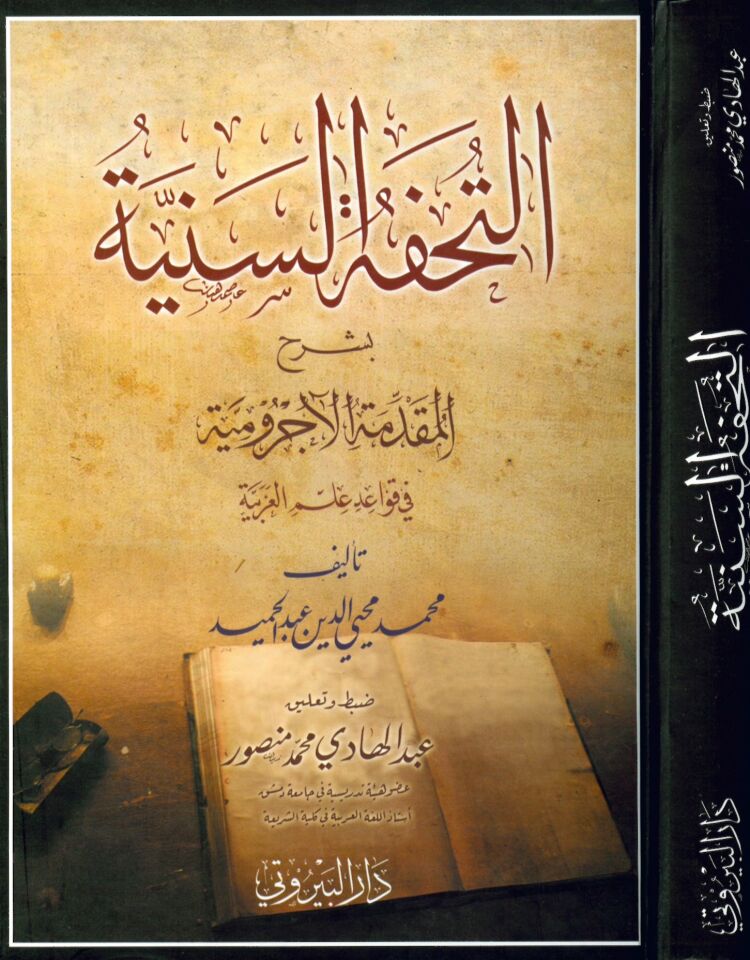 التُّحفَةُ السَّنِيَّةُ
بشرح
المُقَدِّمَةِ الآجُرُّومِيَّةِ
في قواعِدِ عِلمِ العَرَبيَّةِ
تأليف
محمد محيي الدين عبد الحميد
ضبط وتعليق
عبد الهادي محمد منصور
عضو هيئة تدريسية في جامعة دمشق
أستاذ اللغة العربية في كلية الشريعة
دَار البَيْرُوتي
ضبط وتعليق
عبد الهادي محمد منصور
التُّحفَةُ السَّنِيَّةُ
دَار البَيْرُوتي